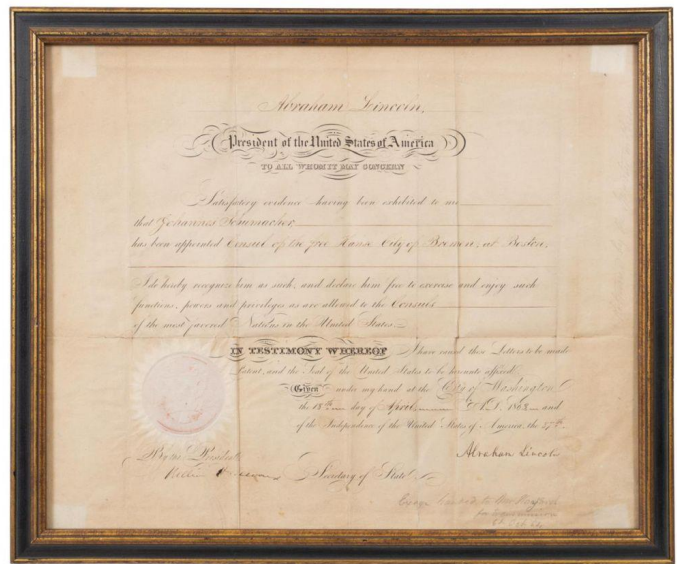 Abraham Lincoln,
President of the United States of America
TO ALL WHOM IT MAY CONCERN
Satisfactory evidence having been exhibited to me
that Johannes Schumacher
has been appointed Consul of the free Hansa City of Bremen, at Boston,
I do hereby recognize him as such, and declare him free to exercise and enjoy such
functions, powers and privileges as are allowed to the Consuls
of the most favored Nations in the United States.
IN TESTIMONY WHEREOF I have caused these Letters to be made
Patent, and the Seal of the United States to be hereunto affixed.
Given under my hand at the City of Washington
the 18th day of April A.D. 1863 and
of the Independence of the United States of America, the 87th
Abraham Lincoln
By the President
Secretary of State